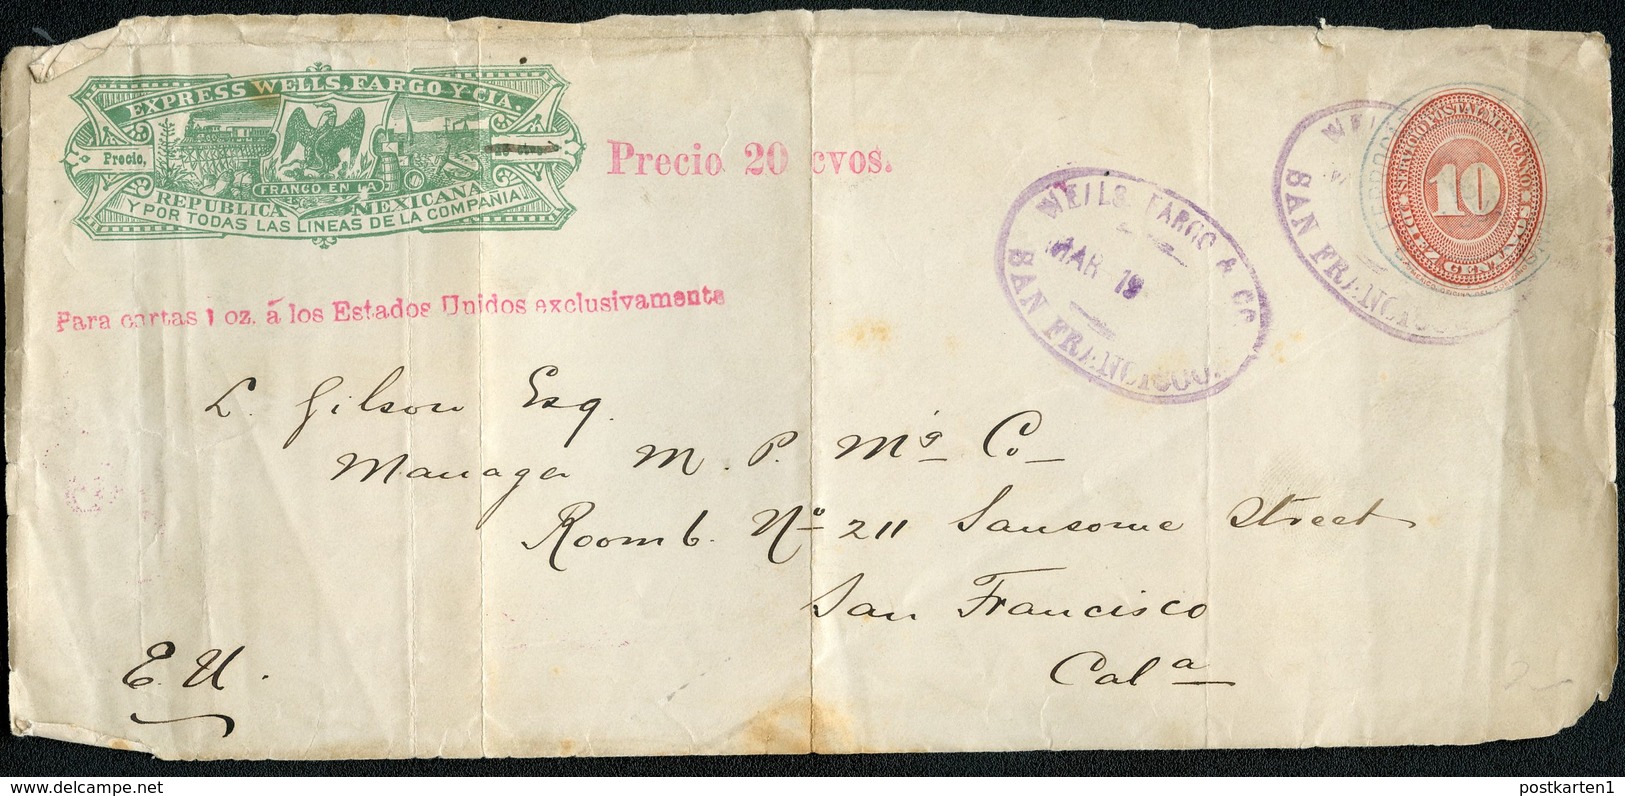 EXPRESS WELLS, FARGO Y CIA.
Precio,
FRANCO EN LA
REPUBLICA MEXICANA
Y POR TODAS LAS LINEAS DE LA COMPAÑIA.
Precio 20 cvos.
Para cartas 1 oz. á los Estados Unidos exclusivamente
WELLS, FARGO & CO.
MAR 19
SAN FRANCISCO.
WELLS
SAN FRANCISCO
10
L. Gilson Esq.
Manager M. P. Mg Co
Room 6. No 211 Sansome Street
San Francisco
Cala
E. U.
postkarten1